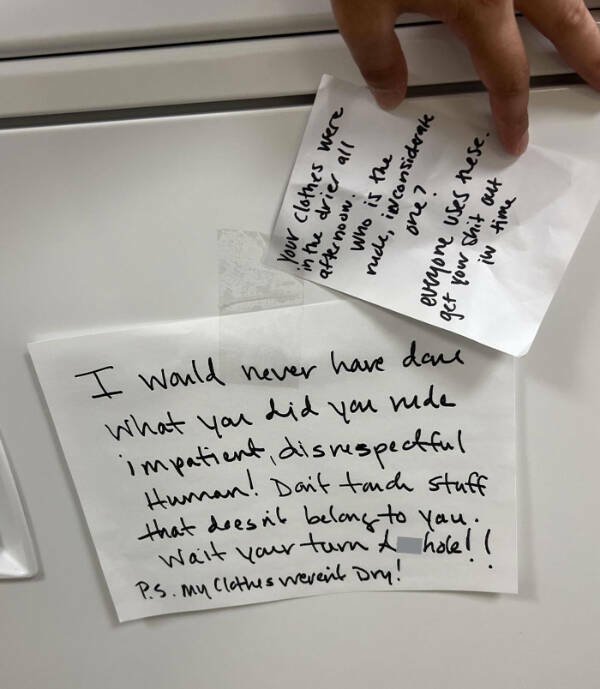 Your Clothes were
in the drier all
afternoon.
Who is the
rude, inconsiderate
one?
everyone uses these.
get your shit out
in time
I would never have done
what you did you rude
impatient, disrespectful
Human! Don't touch stuff
that doesn't belong to you.
Wait your turn A hole!!
P.S. My Clothes weren't Dry!